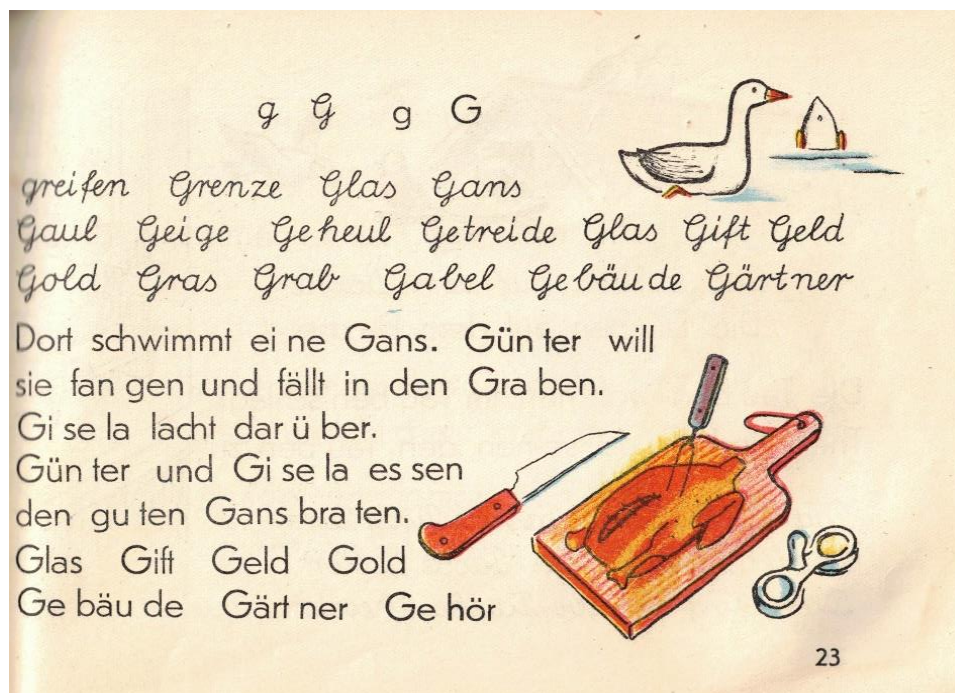 g G g G
greifen Grenze Glas Gans
Gaul Geige Geheul Getreide Glas Gift Geld
Gold Gras Grab Gabel Gebäude Gärtner
Dort schwimmt ei ne Gans. Gün ter will
sie fan gen und fällt in den Gra ben.
Gi se la lacht dar ü ber.
Gün ter und Gi se la es sen
den gu ten Gans bra ten.
Glas Gift Geld Gold
Ge bäu de Gärt ner Ge hör
23